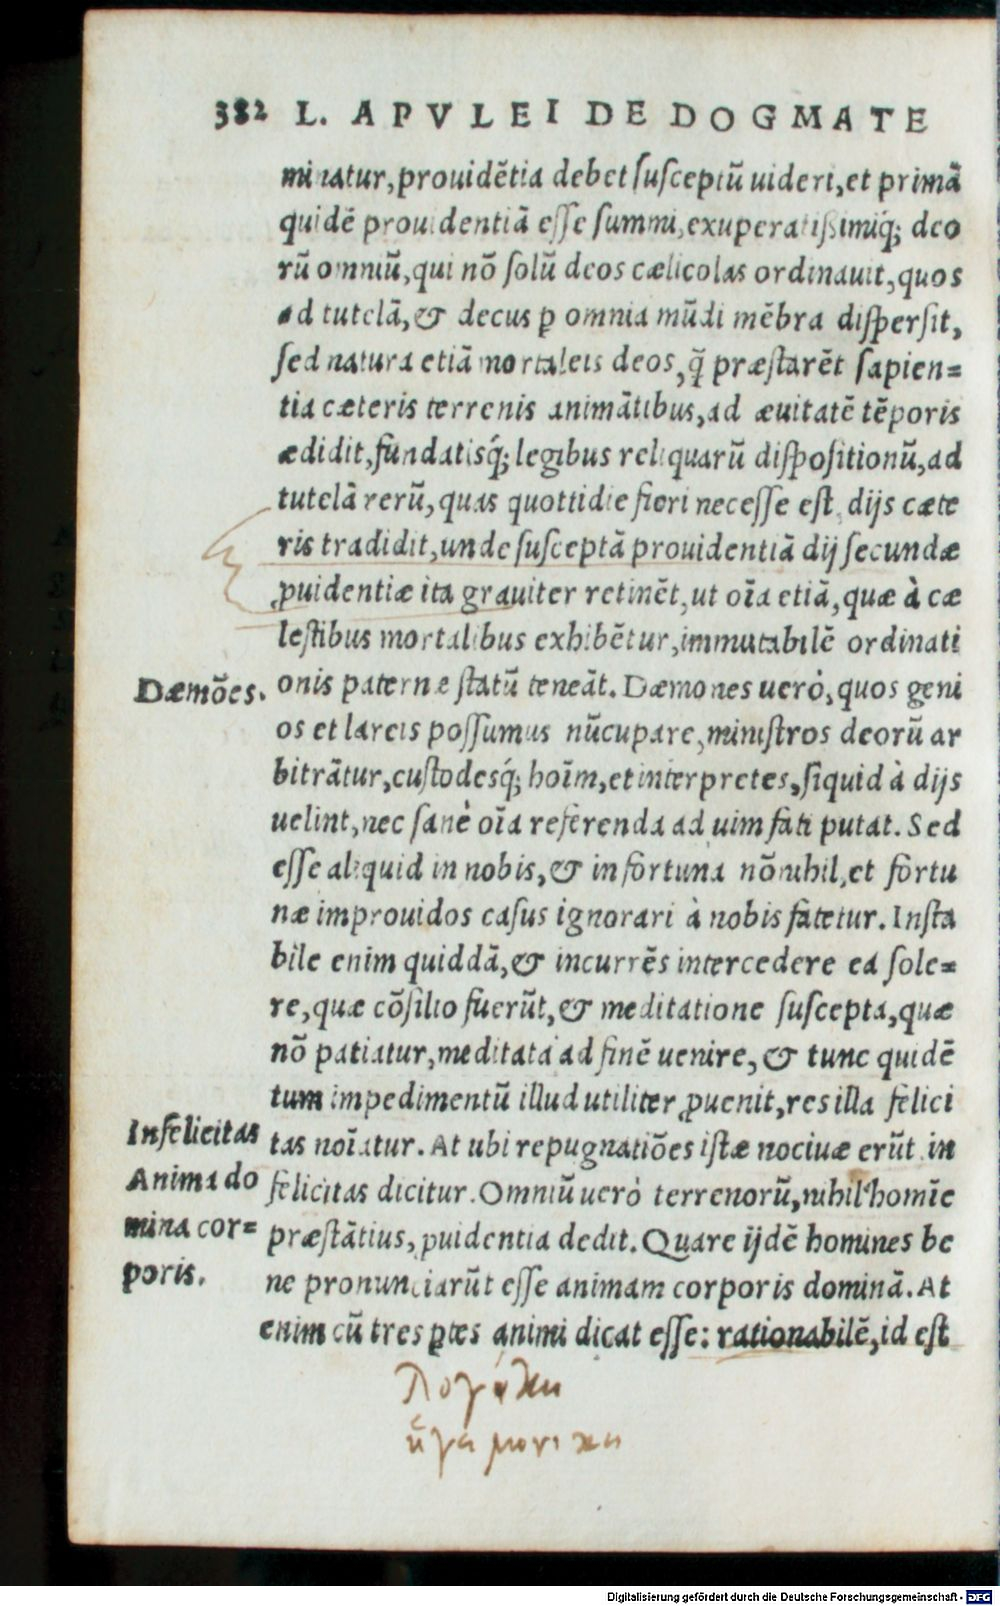 382 L. APVLEI DE DOGMATE
minatur, prouidētia debet susceptū uideri, et primā
quidē prouidentiā esse summi, exuperatissimiq́; deo
rū omniū, qui nō solū deos cælicolas ordinauit, quos
ad tutelā, & decus ꝑ omnia mūdi mēbra dispersit,
sed natura etiā mortaleis deos, q̄ præstarēt sapien=
tia cæteris terrenis animātibus, ad æuitatē tēporis
ædidit, fundatisq́; legibus reliquarū dispositionū, ad
tutelā rerū, quas quottidie fieri necesse est, dijs cæte
ris tradidit, unde susceptā prouidentiā dij secundæ
ꝓuidentiæ ita grauiter retinēt, ut oīa etiā, quæ à cæ
lestibus mortalibus exhibētur, immutabilē ordinati
Dæmōes.
onis paternæ statū teneāt. Dæmones uerò, quos geni
os et lareis possumus nūcupare, ministros deorū ar
bitrātur, custodesq́; hoīm, et interpretes, siquid à dijs
uelint, nec sanè oīa referenda ad uim fati putat. Sed
esse aliquid in nobis, & in fortuna nōnihil, et fortu
næ improuidos casus ignorari à nobis fatetur. Insta
bile enim quiddā, & incurrēs intercedere ea sole=
re, quæ cōsilio fuerūt, & meditatione suscepta, quæ
nō patiatur, meditata ad finē uenire, & tunc quidē
tum impedimentū illud utiliter ꝓuenit, res illa felici
Infelicitas
tas noīatur. At ubi repugnatiōes istæ nociuæ erūt in
Anima do
mina cor=
poris.
felicitas dicitur. Omniū uerò terrenorū, nihil homīe
præstātius, ꝓuidentia dedit. Quare ijdē homines be
ne pronunciarūt esse animam corporis dominā. At
enim cū tres ꝑtes animi dicat esse: rationabilē, id est
λογικη
ἡγεμονικη
Digitalisierung gefördert durch die Deutsche Forschungsgemeinschaft - DFG